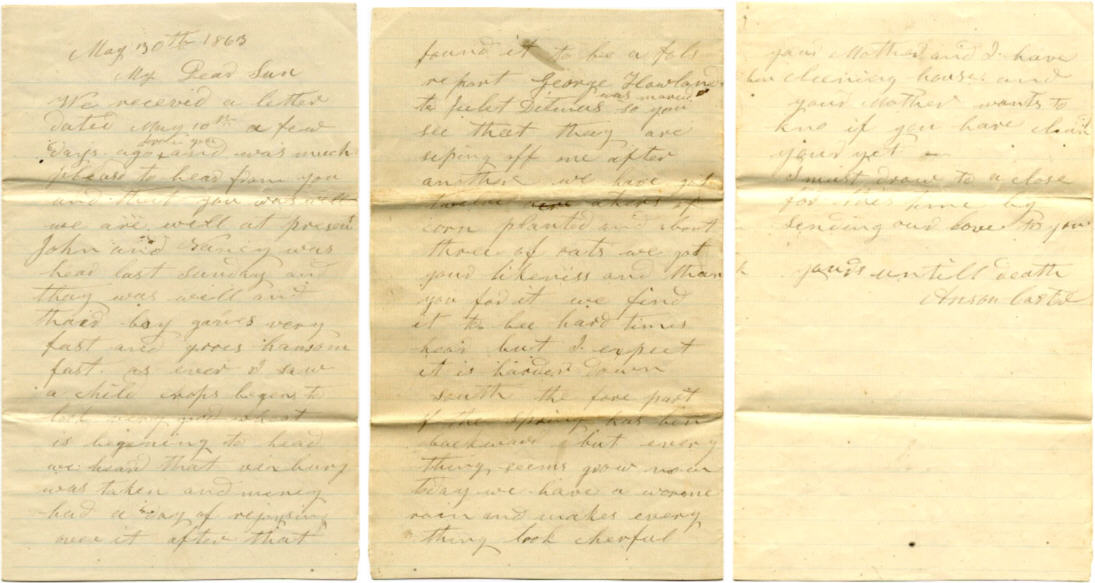 May 30th 1863
My Dear Sun
We receved a letter
dated May 10th a few
days ago from you and was much
pleasd to hear from you
and that you was well
we are well at present
John and Nancy was
hear last sunday and
thay was well and
thair boy groes very
fast and groes hansom
fast as ever I saw
a child crops begins to
look very good wheat
is begining to head
we heard that vixburg
was taken and meney
had a day of rejoysing
over it after that
found it to be a fols
report George Howland
was maried to Juliet Ditmas so you
see that thay are
seping off one after
another we have got
twelve akers of
corn planted and about
three of oats we got
your likeniss and thank
you for it we find
it to bee hard times
hear but I expect
it is harder down
south the fore part
of the spring has ben
backward but every
thing seems grow now
today we have a warme
rain and makes every
thing look cherful
your Mother and I have
ben cleening house and
your Mother wants to
kno if you have clean
yours yet
I must draw to a close
for this time by
sending our love to you
yours untill death
Anson